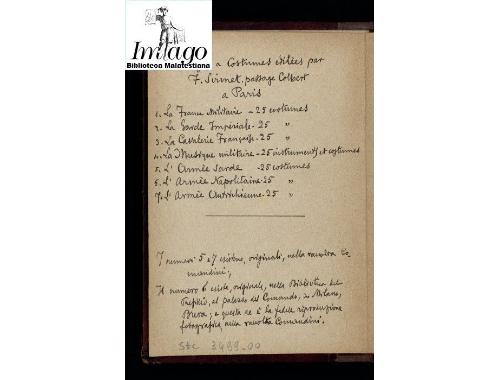 Imago
Biblioteca Malatestiana
a Costumes éditées par
F. Sirmet, passage Colbert
a Paris
1. La France Militaire - 25 costumes
2. La Garde Impériale - 25 "
3. La Cavalerie Française - 25 "
4. La Musique militaire - 25 instruments et costumes
5. L' Armée Sarde - 25 costumes
6. L' Armée Napolitaine - 25 "
7. L' Armée Autrichienne - 25 "
I numeri 5 e 7 esistono, originali, nella raccolta Co-
mandini;
Il numero 6 esiste, originale, nella Biblioteca del
al palazzo del Comando, in Milano,
Brera; e questa ne è la fedele riproduzione
fotografica, nella raccolta Comandini.
Stc 3499-00